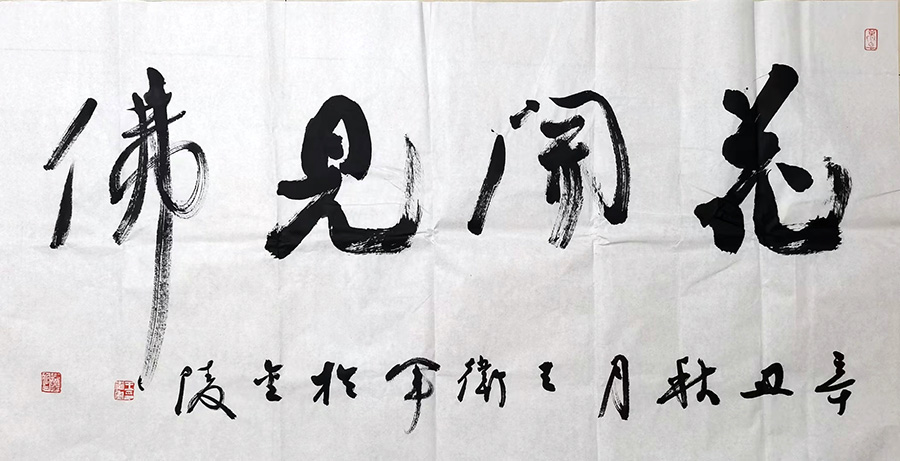 花開見佛
辛丑秋月王衛軍於金陵